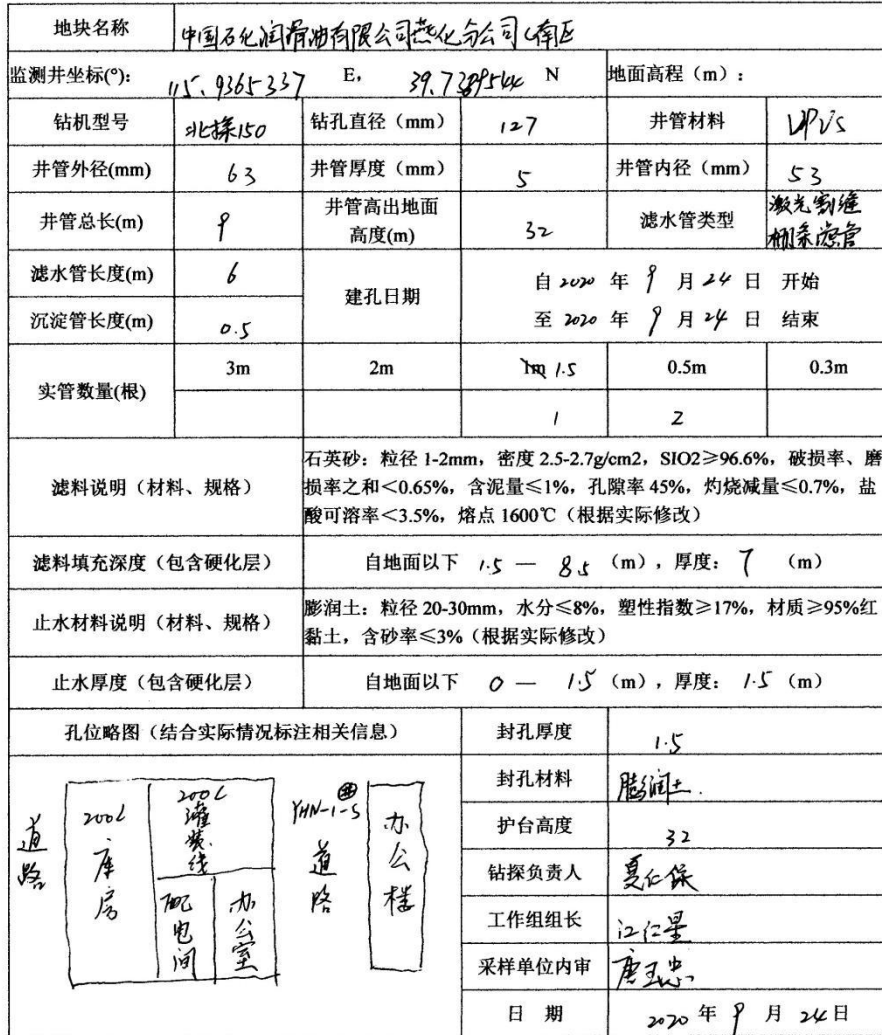 地块名称 中国石化润滑油有限公司燕化分公司(南区
监测井坐标(°): 115.9365337 E, N 地面高程（m）:
钻机型号 北探150 钻孔直径（mm） 127 井管材料 UPVS
井管外径(mm) 63 井管厚度（mm） 5 井管内径（mm） 53
井管总长(m) 9 井管高出地面
高度(m) 32 滤水管类型 激光割缝
棚条滤管
滤水管长度(m) 6 建孔日期 自 2020 年 9 月 24 日 开始
沉淀管长度(m) 0.5 至 2020 年 9 月 24 日 结束
实管数量(根) 3m 2m 1m 1.5 0.5m 0.3m
1 2
滤料说明（材料、规格） 石英砂：粒径 1-2mm，密度 2.5-2.7g/cm2，SIO2≥96.6%，破损率、磨
损率之和＜0.65%，含泥量≤1%，孔隙率 45%，灼烧减量≤0.7%，盐
酸可溶率＜3.5%，熔点 1600℃（根据实际修改）
滤料填充深度（包含硬化层） 自地面以下 1.5 — 8.5 （m）, 厚度: 7 （m）
止水材料说明（材料、规格） 膨润土：粒径 20-30mm，水分≤8%，塑性指数≥17%，材质≥95%红
黏土，含砂率≤3%（根据实际修改）
止水厚度（包含硬化层） 自地面以下 0 — 1.5 （m）, 厚度: 1.5 （m）
孔位略图（结合实际情况标注相关信息）
道路
200L
库房
200L
灌装线
配电间
办公室
YHN-1-S
道路
办公楼
封孔厚度 1.5
封孔材料 膨润土.
护台高度 32
钻探负责人 夏仁保
工作组组长 江仁星
采样单位内审 唐玉忠
日 期 2020 年 9 月 24日